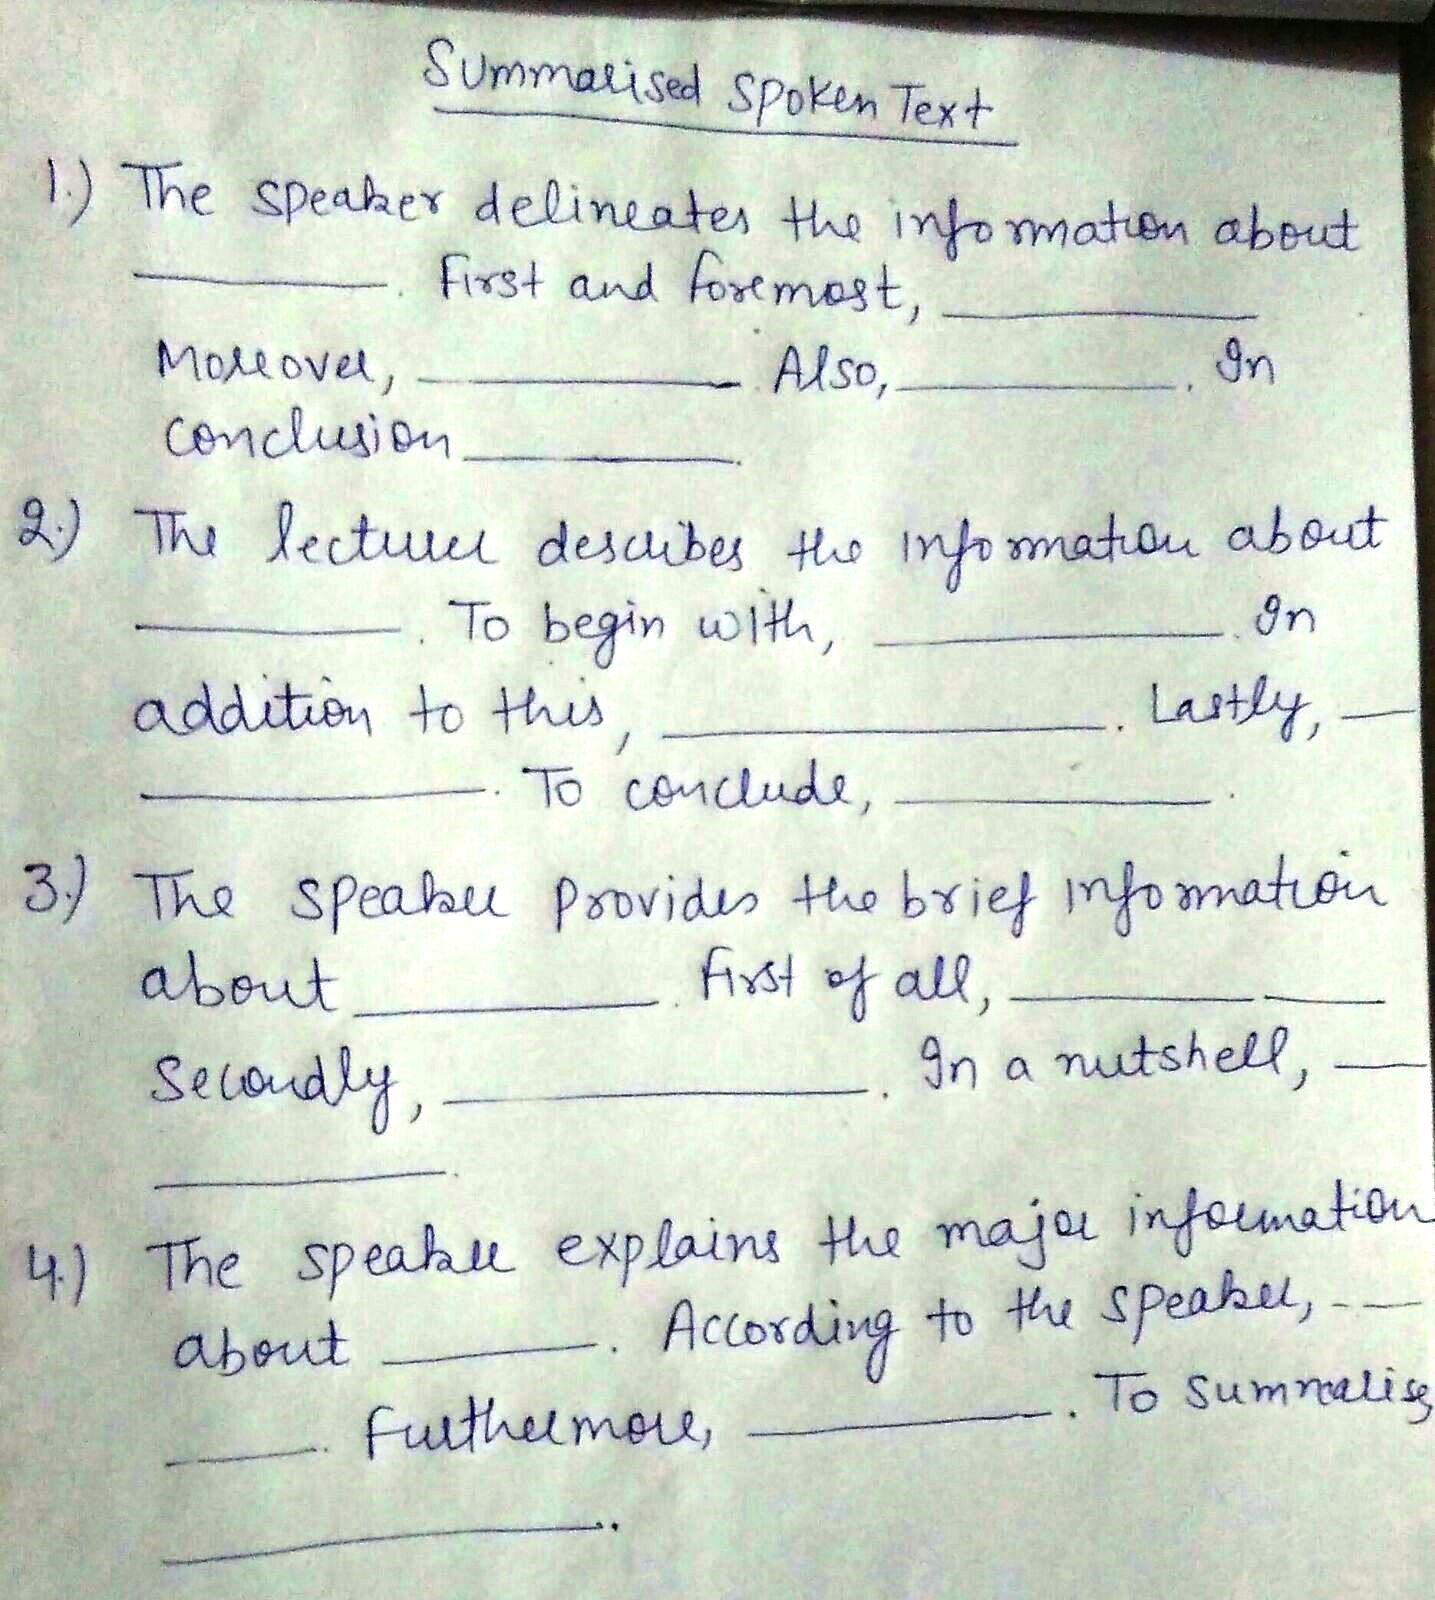 Summarised Spoken Text
1.) The speaker delineates the information about
________. First and foremost, ________
Moreover, ________. Also, ________. In
conclusion ________.
2.) The lecturer describes the information about
________. To begin with, ________. In
addition to this, ________. Lastly, __
________. To conclude, ________.
3.) The speaker provides the brief information
about ________. First of all, ________ ____
Secondly, ________. In a nutshell, ___
________.
4.) The speaker explains the major information
about ________. According to the speaker, -- __
_____. Furthermore, ________. To summarise,
________..